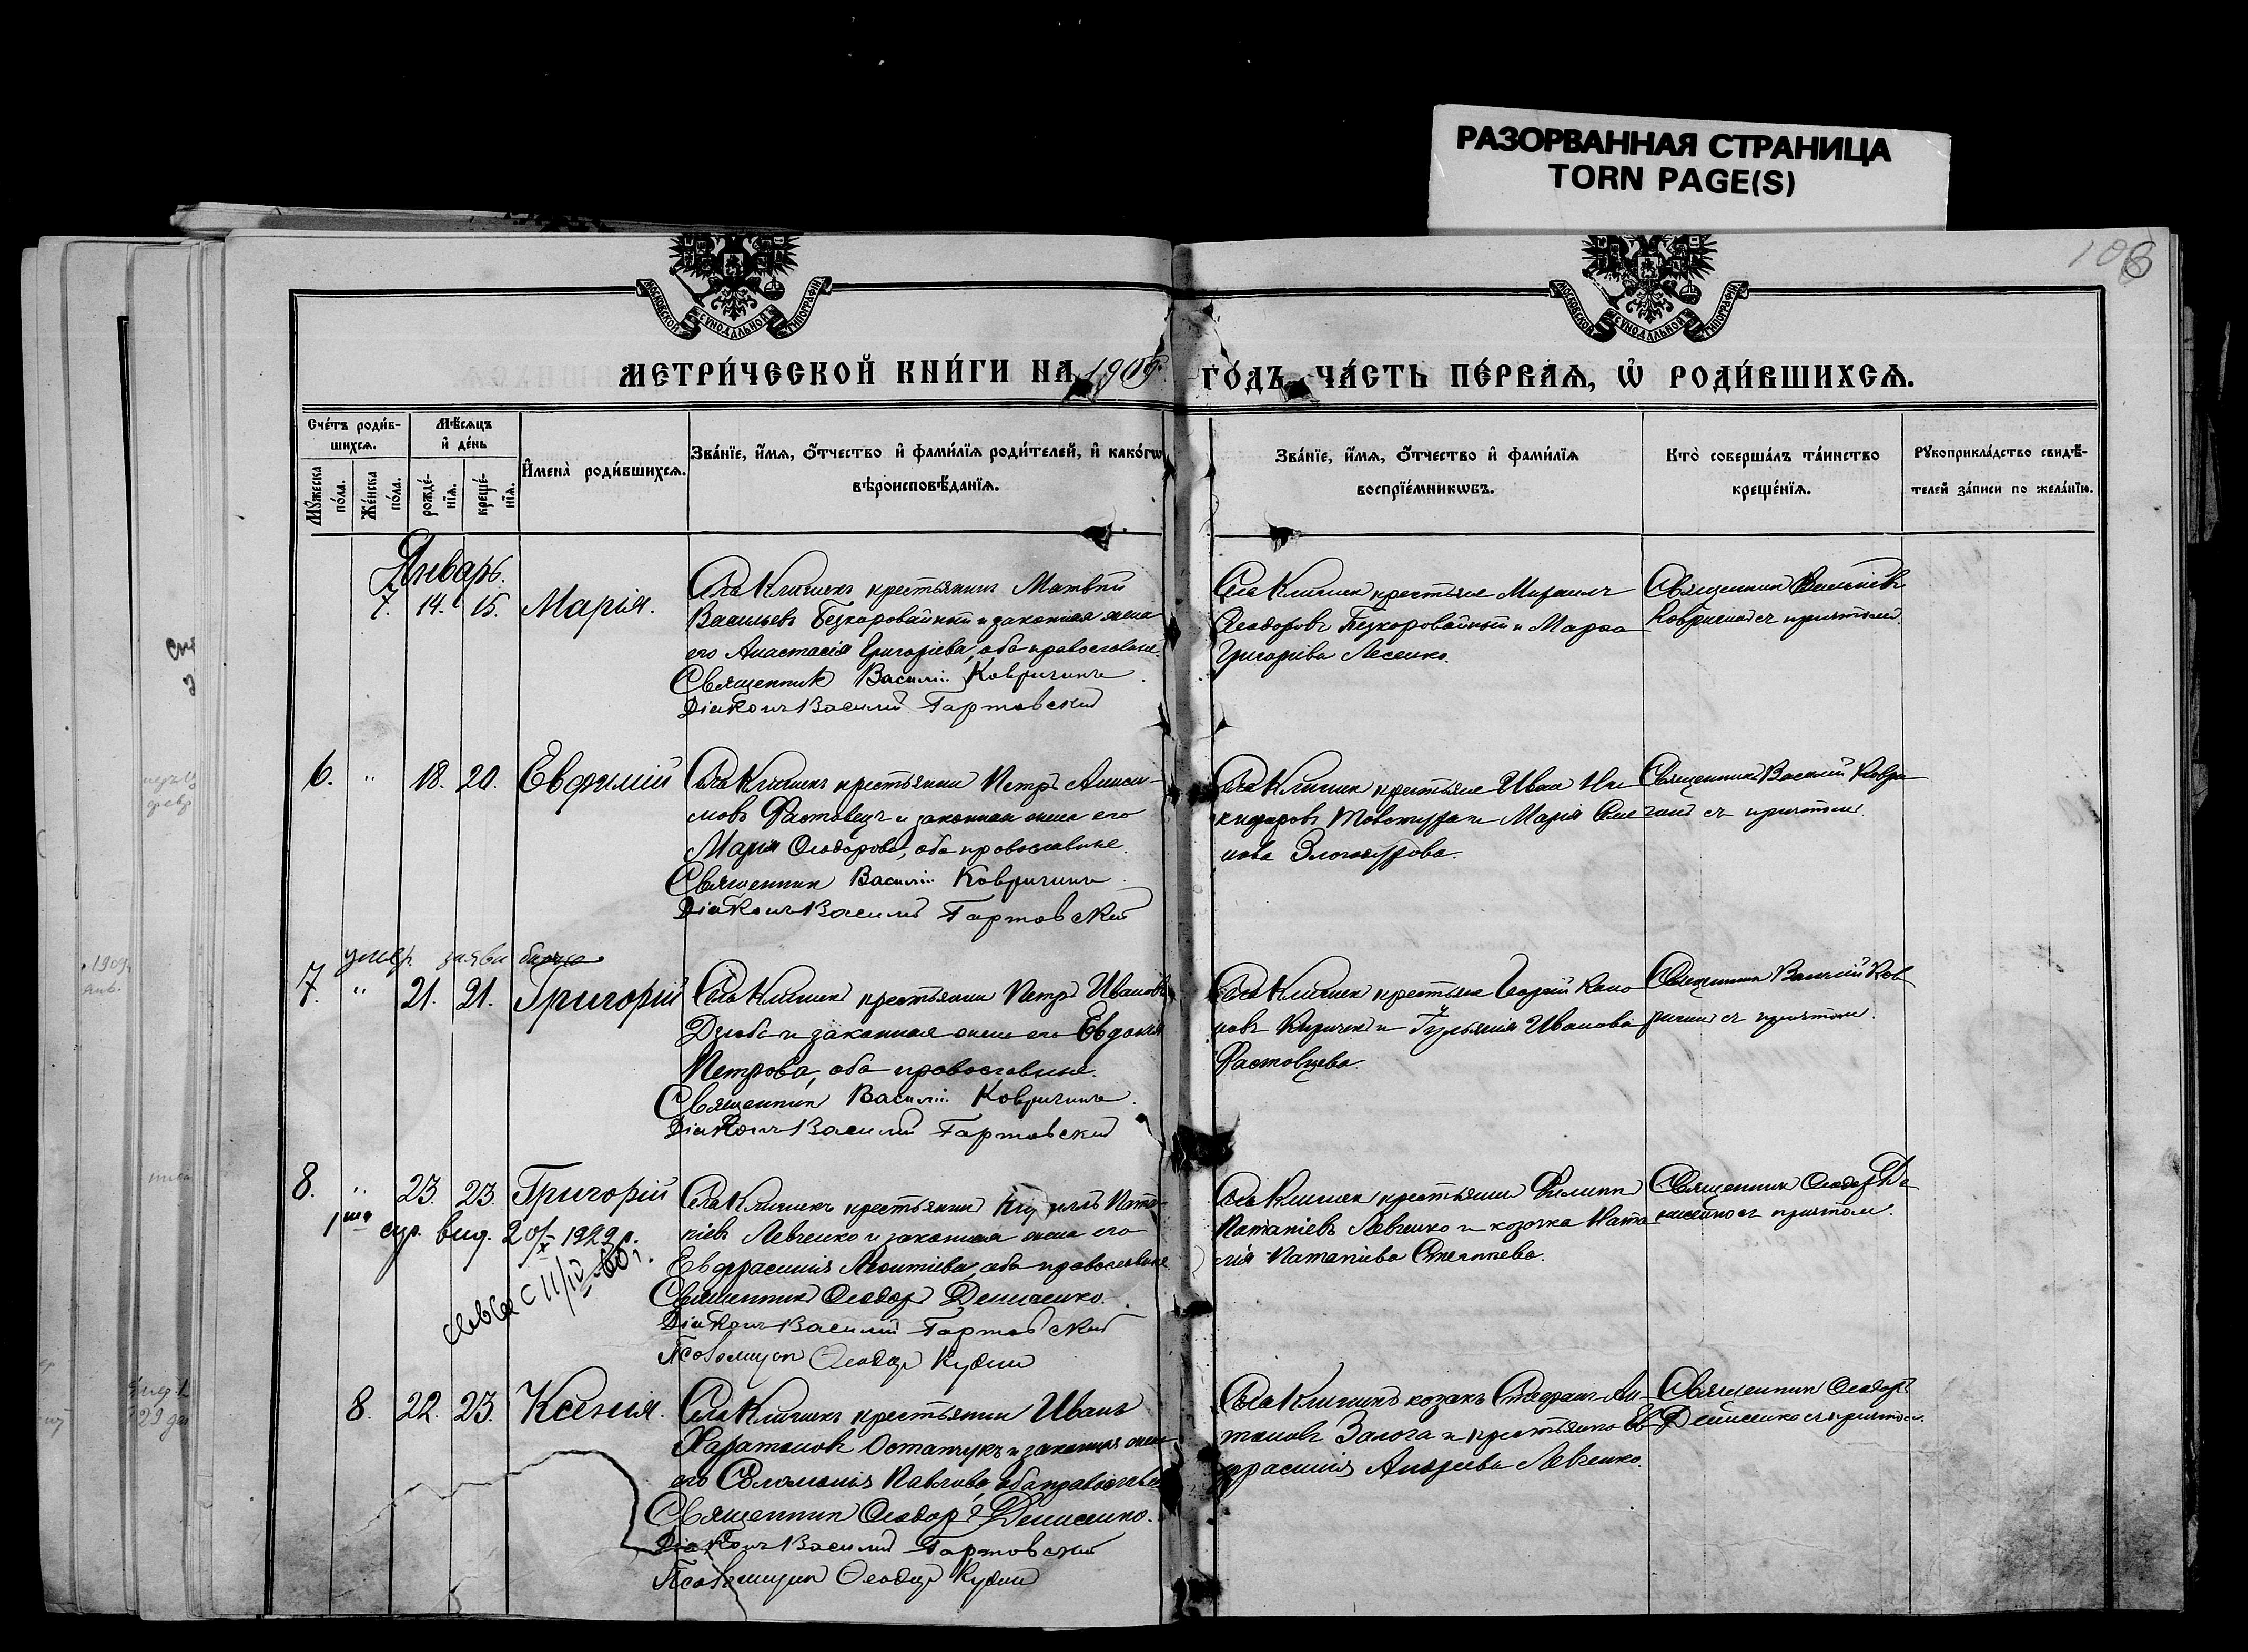 РАЗОРВАННАЯ СТРАНИЦА
TORN PAGE(S)
МОСКОВСКОЙ СѴНОДАЛЬНОЙ ТИПОГРАФІИ
МОСКОВСКОЙ СѴНОДАЛЬНОЙ ТИПОГРАФІИ
МЕТРИ́ЧЕСКОЙ КНИ́ГИ НА 1909
ГО́ДЪ, ЧА́СТЬ ПЕ́РВАѦ, Ѡ҆ РОДИ́ВШИХСѦ.
Сче́тъ роди́в-
шихсѧ.
Мѣ́сѧцъ
и҆ де́нь
Мꙋ́жеска
по́ла.
Же́нска
по́ла.
рожде́-
нїѧ.
креще́-
нїѧ.
И҆мена̀ роди́вшихсѧ.
Зва́нїе, и҆́мѧ, ѻ҆́тчество и҆ фами́лїѧ роди́телей, и҆ како́гѡ
вѣроисповѣ́данїѧ.
Зва́нїе, и҆́мѧ, ѻ҆́тчество и҆ фами́лїѧ
воспрїе́мникѡвъ.
Кто̀ соверша́лъ та́инство
креще́нїѧ.
Рꙋкоприкла́дство свидѣ́-
телей за́писи по жела́нїю.
Январь.
7. 14. 15. Марія.
Села Клишекъ крестьянинъ Матвѣй
Васильевъ Безкоровайный и законная жена
его Анастасія Григоріева, оба православные.
Священникъ Василій Ковригинъ
Діаконъ Василій Гартовский
Села Клишекъ крестьяне Михаилъ
Ѳеодоровъ Безкоровайный и Марѳа
Григоріева Лесенко.
Священникъ Василій
Ковригинъ съ причтомъ.
6. " 18. 20. Евфимій
Села Клишекъ крестьянинъ Петръ
Фастовецъ и законная жена его
Марія Ѳеодорова, оба православные.
Священник Василій Ковригинъ
Діаконъ Василій Гартовский
Села Клишекъ крестьяне Иванъ Ни
кифоровъ Товстуха и Марія Симе
нова
Священникъ Василій Коври
гинъ съ причтомъ.
умер. заяви
7. " 21. 21. Григорій
Села Клишекъ крестьянинъ Петръ Ивановъ
Дзюба и законная жена его Евдокія
Петрова, оба православные.
Священник Василій Ковригинъ
Діаконъ Василій Гартовский
Села Клишекъ крестьяне Георгій
новъ и Гульянія Иванова
Фастовцева.
Священникъ Василій Ков
ригинъ съ причтомъ.
8. " 23. 23. Григорій
вид. 1929 р.
Села Клишекъ крестьянинъ Кириллъ Пата
піевъ Левченко и законная жена его
Евфрасинія Леонтіева, оба православные
Священникъ Ѳеодоръ Денисенко.
Діаконъ Василій Гартовский
Псаломщик Ѳеодор Кудин
Села Клишекъ крестьянинъ Филиппъ
Патапіевъ Левченко и козачка Ната
лія Патапіева
Священникъ Ѳеодоръ Де
нисенко съ причтомъ.
8. 22. 23. Ксенія.
Села Клишекъ крестьянинъ Иванъ
Харитоновъ Остапчукъ и законная жена
его Соломонія Павлова, оба православные
Священник Ѳеодоръ Денисенко.
Діаконъ Василій Гартовский
Псаломщик Ѳеодор Кудин
Села Клишекъ козакъ Стефанъ Ан-
тоновъ Залога и крестьянка Ев
фрасинія Андреева Левченко.
Священник Ѳеодоръ
Денисенко съ причтом.